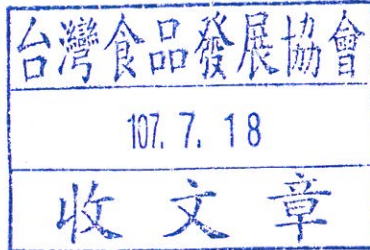 台灣食品發展協會
107. 7. 18
收文章